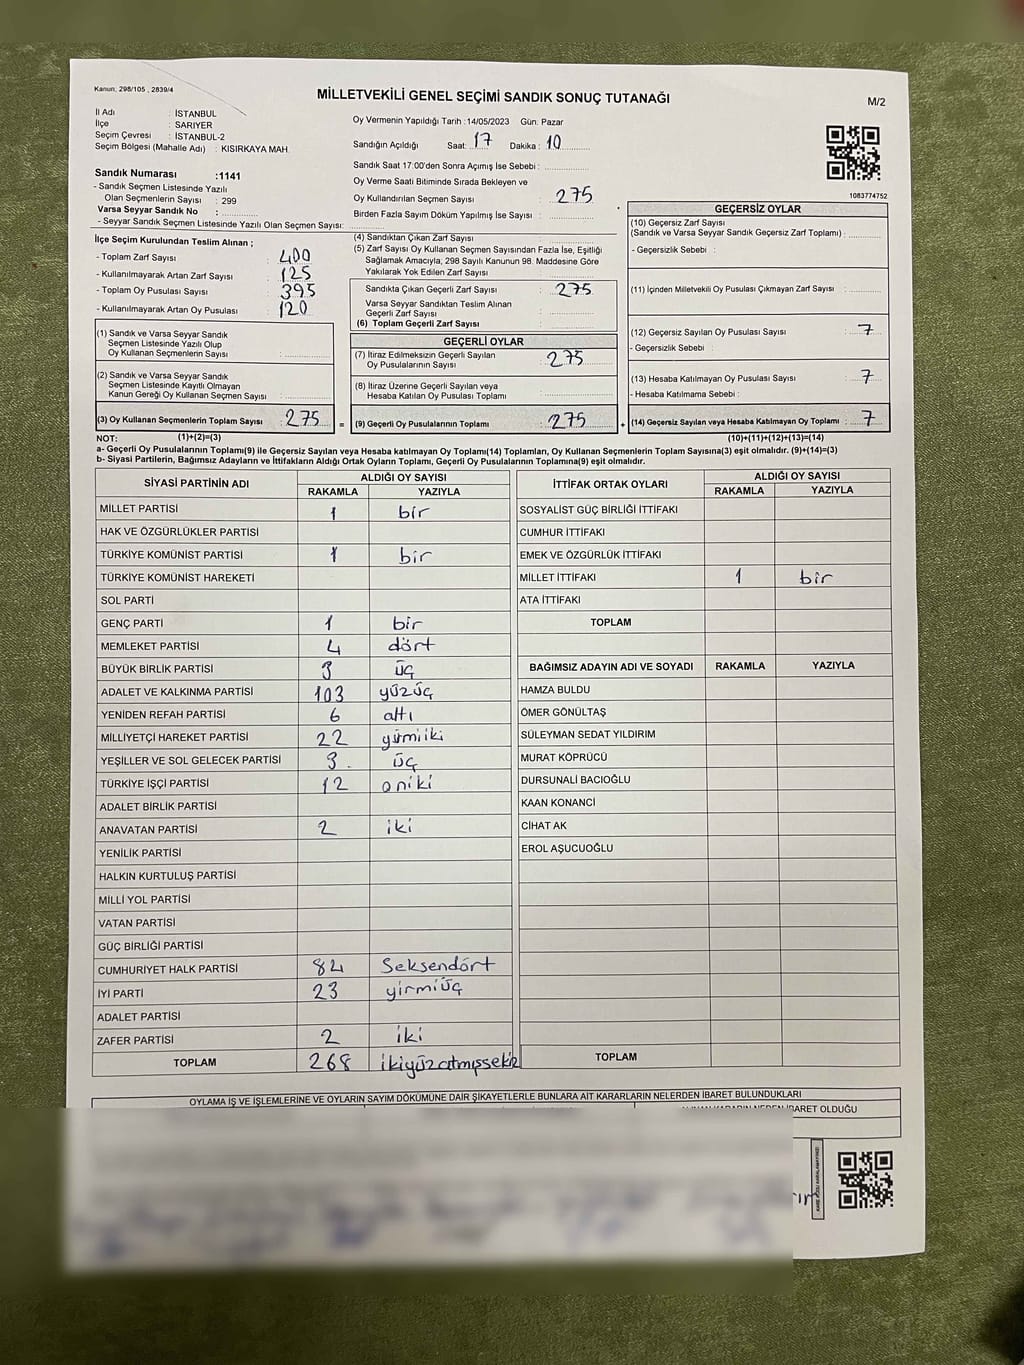 Kanun; 298/105 , 2839/4
MİLLETVEKİLİ GENEL SEÇİMİ SANDIK SONUÇ TUTANAĞI
M/2
İl Adı : İSTANBUL
İlçe : SARIYER
Seçim Çevresi : İSTANBUL-2
Seçim Bölgesi (Mahalle Adı) : KISIRKAYA MAH.
Sandık Numarası :1141
- Sandık Seçmen Listesinde Yazılı
Olan Seçmenlerin Sayısı : 299
Varsa Seyyar Sandık No :
- Seyyar Sandık Seçmen Listesinde Yazılı Olan Seçmen Sayısı:
İlçe Seçim Kurulundan Teslim Alınan ;
- Toplam Zarf Sayısı : 400
- Kullanılmayarak Artan Zarf Sayısı : 125
- Toplam Oy Pusulası Sayısı : 395
- Kullanılmayarak Artan Oy Pusulası : 120
(1) Sandık ve Varsa Seyyar Sandık
Seçmen Listesinde Yazılı Olup
Oy Kullanan Seçmenlerin Sayısı :
(2) Sandık ve Varsa Seyyar Sandık
Seçmen Listesinde Kayıtlı Olmayan
Kanun Gereği Oy Kullanan Seçmen Sayısı :
(3) Oy Kullanan Seçmenlerin Toplam Sayısı : 275 =
Oy Vermenin Yapıldığı Tarih :14/05/2023 Gün: Pazar
Sandığın Açıldığı Saat: 17 Dakika : 10
Sandık Saat 17:00'den Sonra Açımış İse Sebebi :
Oy Verme Saati Bitiminde Sırada Bekleyen ve
Oy Kullandırılan Seçmen Sayısı : 275
Birden Fazla Sayım Döküm Yapılmış İse Sayısı :
(4) Sandıktan Çıkan Zarf Sayısı :
(5) Zarf Sayısı Oy Kullanan Seçmen Sayısından Fazla İse, Eşitliği
Sağlamak Amacıyla; 298 Sayılı Kanunun 98. Maddesine Göre
Yakılarak Yok Edilen Zarf Sayısı :
Sandıkta Çıkan Geçerli Zarf Sayısı : 275
Varsa Seyyar Sandıktan Teslim Alınan
Geçerli Zarf Sayısı :
(6) Toplam Geçerli Zarf Sayısı :
GEÇERLİ OYLAR
(7) İtiraz Edilmeksizin Geçerli Sayılan
Oy Pusulalarının Sayısı : 275
(8) İtiraz Üzerine Geçerli Sayılan veya
Hesaba Katılan Oy Pusulası Toplamı :
(9) Geçerli Oy Pusulalarının Toplamı : 275 +
1083774752
GEÇERSİZ OYLAR
(10) Geçersiz Zarf Sayısı
(Sandık ve Varsa Seyyar Sandık Geçersiz Zarf Toplamı) :
- Geçersizlik Sebebi :
(11) İçinden Milletvekili Oy Pusulası Çıkmayan Zarf Sayısı :
(12) Geçersiz Sayılan Oy Pusulası Sayısı : 7
- Geçersizlik Sebebi :
(13) Hesaba Katılmayan Oy Pusulası Sayısı : 7
- Hesaba Katılmama Sebebi :
(14) Geçersiz Sayılan veya Hesaba Katılmayan Oy Toplamı : 7
NOT: (1)+(2)=(3) (10)+(11)+(12)+(13)=(14)
a- Geçerli Oy Pusulalarının Toplamı(9) ile Geçersiz Sayılan veya Hesaba katılmayan Oy Toplamı(14) Toplamları, Oy Kullanan Seçmenlerin Toplam Sayısına(3) eşit olmalıdır. (9)+(14)=(3)
b- Siyasi Partilerin, Bağımsız Adayların ve İttifakların Aldığı Ortak Oyların Toplamı, Geçerli Oy Pusulalarının Toplamına(9) eşit olmalıdır.
SİYASİ PARTİNİN ADI ALDIĞI OY SAYISI
RAKAMLA YAZIYLA
MİLLET PARTİSİ 1 bir
HAK VE ÖZGÜRLÜKLER PARTİSİ
TÜRKİYE KOMÜNİST PARTİSİ 1 bir
TÜRKİYE KOMÜNİST HAREKETİ
SOL PARTİ
GENÇ PARTİ 1 bir
MEMLEKET PARTİSİ 4 dört
BÜYÜK BİRLİK PARTİSİ 3 üç
ADALET VE KALKINMA PARTİSİ 103 yüzüç
YENİDEN REFAH PARTİSİ 6 altı
MİLLİYETÇİ HAREKET PARTİSİ 22 yirmiiki
YEŞİLLER VE SOL GELECEK PARTİSİ 3 üç
TÜRKİYE İŞÇİ PARTİSİ 12 oniki
ADALET BİRLİK PARTİSİ
ANAVATAN PARTİSİ 2 iki
YENİLİK PARTİSİ
HALKIN KURTULUŞ PARTİSİ
MİLLİ YOL PARTİSİ
VATAN PARTİSİ
GÜÇ BİRLİĞİ PARTİSİ
CUMHURİYET HALK PARTİSİ 84 Seksendört
İYİ PARTİ 23 yirmiüç
ADALET PARTİSİ
ZAFER PARTİSİ 2 iki
TOPLAM 268 ikiyüzatmışsekiz
İTTİFAK ORTAK OYLARI ALDIĞI OY SAYISI
RAKAMLA YAZIYLA
SOSYALİST GÜÇ BİRLİĞİ İTTİFAKI
CUMHUR İTTİFAKI
EMEK VE ÖZGÜRLÜK İTTİFAKI
MİLLET İTTİFAKI 1 bir
ATA İTTİFAKI
TOPLAM
BAĞIMSIZ ADAYIN ADI VE SOYADI RAKAMLA YAZIYLA
HAMZA BULDU
ÖMER GÖNÜLTAŞ
SÜLEYMAN SEDAT YILDIRIM
MURAT KÖPRÜCÜ
DURSUNALİ BACIOĞLU
KAAN KONANCİ
CİHAT AK
EROL AŞUCUOĞLU
TOPLAM
OYLAMA İŞ VE İŞLEMLERİNE VE OYLARIN SAYIM DÖKÜMÜNE DAİR ŞİKAYETLERLE BUNLARA AİT KARARLARIN NELERDEN İBARET BULUNDUKLARI
İBARET OLDUĞU